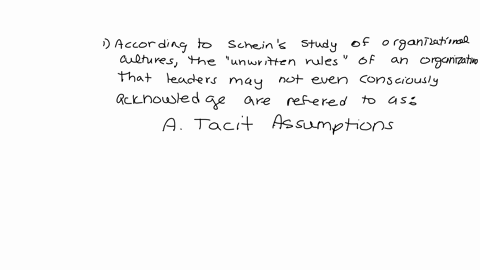 1) According to Schein's study of organizational
cultures, the "unwritten rules" of an organization
That leaders may not even consciously
acknowledge are refered to as:
A. Tacit Assumptions